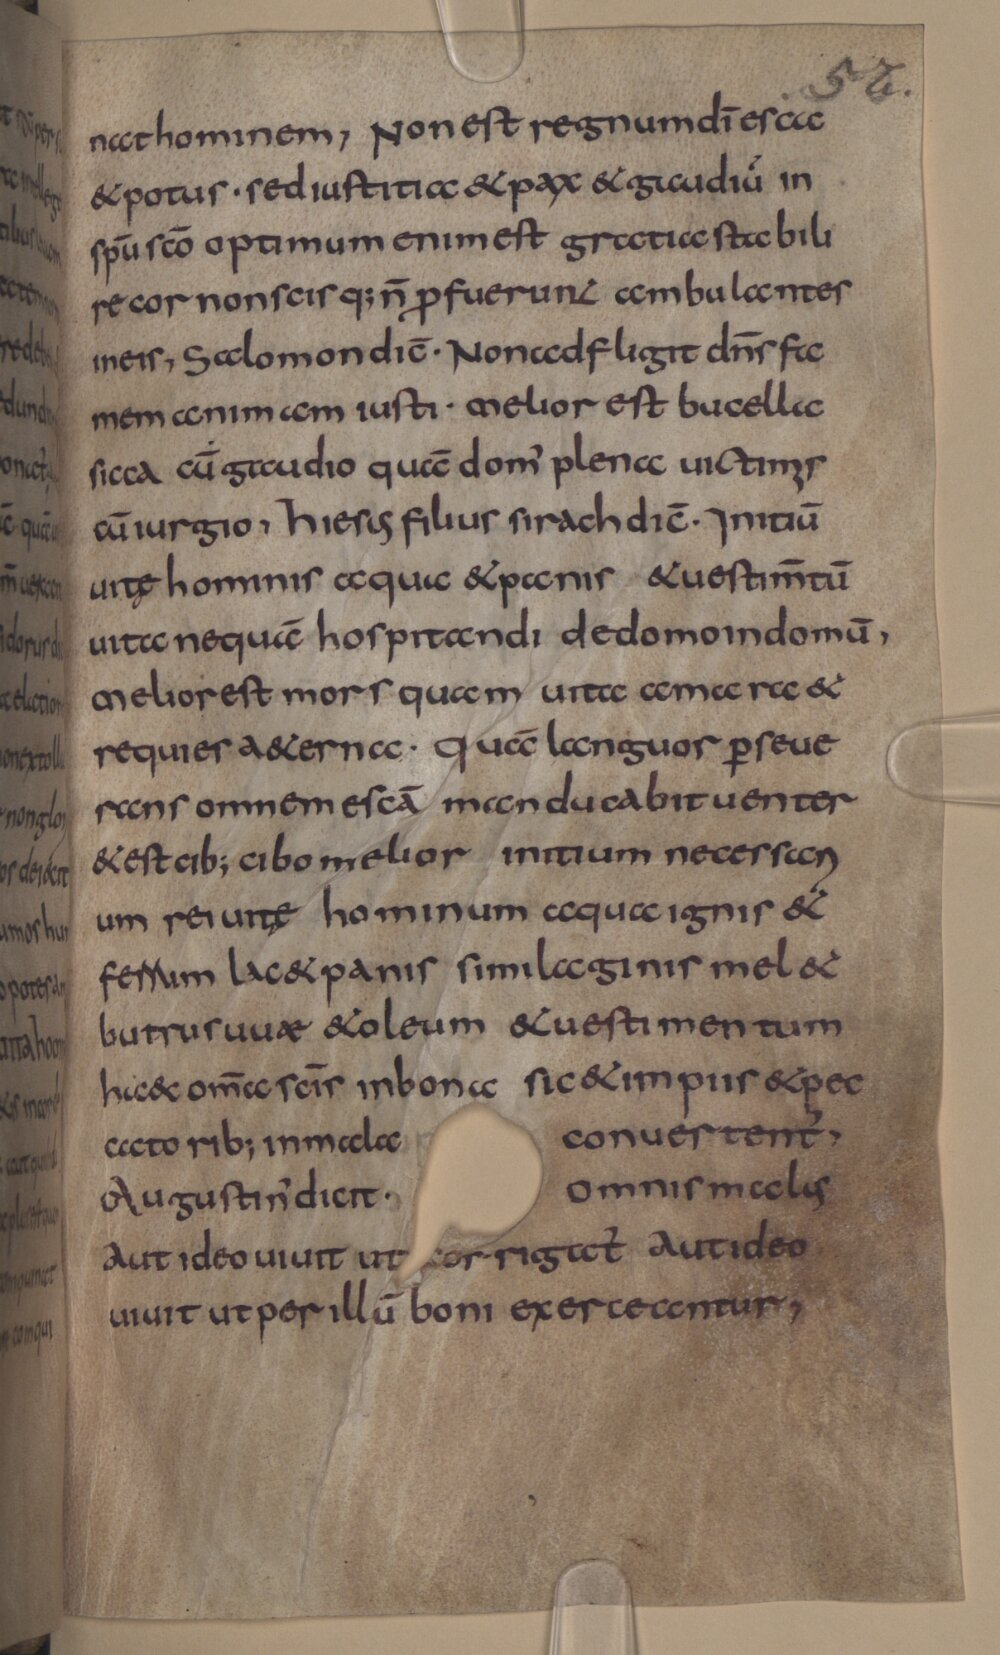 52.
nat hominem, Non est regnum dī esca
& potus · sed iustitia & pax & gaudiū in
spū scō optimum enim est gratia stabili
re cor non scis q; n̄ ꝓfuerunt ambulantes
in eis, Salomon dic̄ · Non adfligit dn̄s fa
mem animam iusti · Melior est bucella
sicca cū gaudio quā dom' plena uictimis
cū iurgio, Hiesus filius sirach dic̄ · Initiū
uitę hominis aqua & panis & uestim̄tū
uita nequā hospitandi de domo in domū,
Melior est mors quam uita amara &
requies a&erna · Quā languor ꝑseue
rans omnem escā manducabit uenter
& est cib; cibo melior initium necessari
um rei uitę hominum aqua ignis &
ferrum lac & panis similaginis mel &
butrus uuæ & oleum & uestimentum
hæc omīa scīs in bona sic & impiis & pec
catorib; in mala conuertent',
Augustin' dicit · Omnis malus
Aut ideo uiuit ut cor rigat' Aut ideo
uiuit ut per illū boni exerceantur,